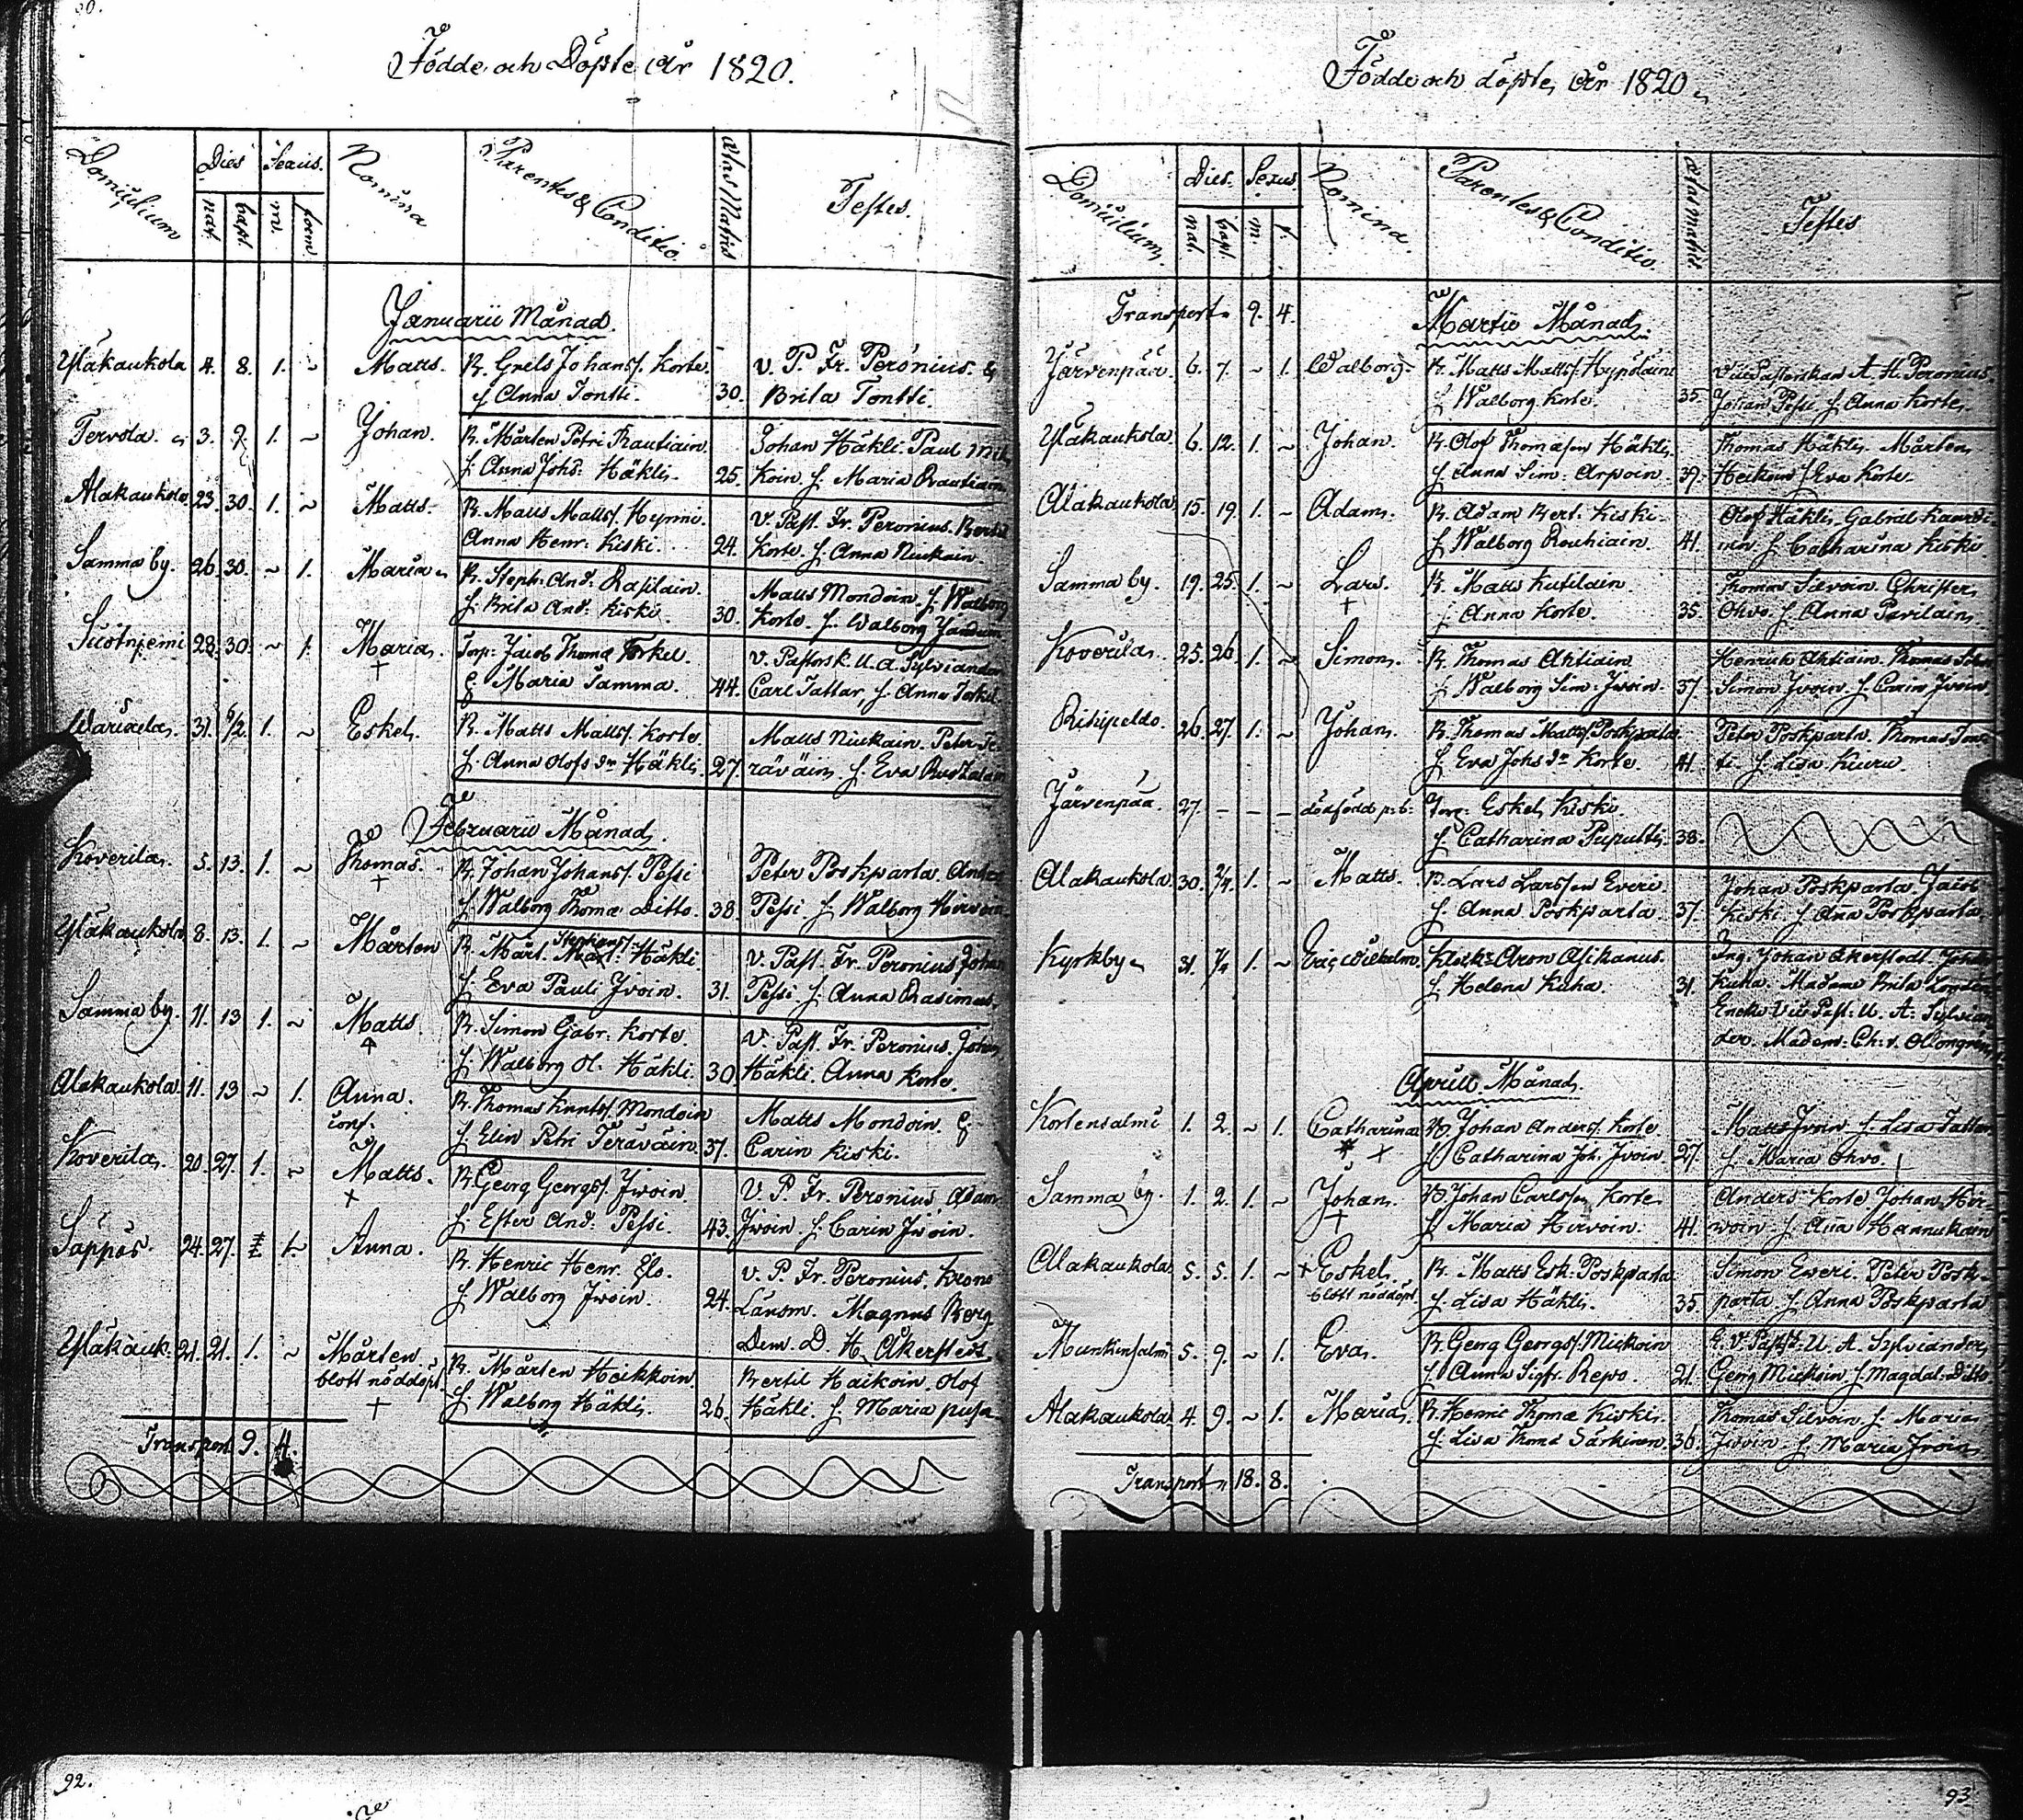 90.
Födde och Döpte År 1820.
Domicilium Dies Sexus. Nomina Parentes & Conditio. ætas Matris Testes.
nat. bapt. m. foem.
Januarii Månad.
Yläkaukola 4. 8. 1. ~ Matts. B. Grels Johanss. Korte. V. P. Fr. Peronius. &
h. Anna Tontti. 30. Brita Tontti.
Tervola. 3. 9. 1. ~ Johan. B. Mårten Petri Rautiain. Johan Häkli. Paul Mik
h. Anna Johs: Häkli. 25. koin. h. Maria Rautiain
Alakaukola. 23. 30. 1. ~ Matts. B. Matts Matts. Hynni. V. Past. Fr. Peronius. Bertil
Anna Henr: Kiski. 24. Korte. h. Anna Niukain.
Samma by. 26. 30. ~ 1. Maria B. Steph: And: Rasilain. Matts Mondoin. h. Walborg
h. Brita And: Kiski. 30. Korte. h. Walborg
28. 30. ~ 1. Maria. Torp: Jacob Thomæ Torkel. V. Pastorsk. U. A. Sylviander
† & Maria Samma. 44. Carl Tattar, h. Anna Torkel.
31. 6/2. 1. ~ Eskel. B. Matts Matts. Korte. Matts Niukain. Peter Te-
h. Anna Olofs dr Häkli. 27. räväin. h. Eva
Februarii Månad.
Koverila. 5. 13. 1. ~ Thomas. B. Johan Johans. Pessi Peter Poskparta. Anders
† h. Walborg Thomæ Ditto. 38. Pessi. h. Walborg Hirvoin.
Yläkaukola 8. 13. 1. ~ Mårten B. Mårt. Stephans. Häkli. V. Past. Fr. Peronius Johan
h. Eva Pauli Ivoin. 31. Pessi h. Anna Rasimus.
Samma by. 11. 13 1. ~ Matts. B. Simon Gabr. Korte. V. Past. Fr. Peronius. Johan
† h. Walborg Ol. Häkli. 30. Häkli. Anna Korte.
Alakaukola 11. 13 ~ 1. Anna. B. Thomas Knuts. Mondoin Matts Mondoin. &
h. Elin Petri Teräväin. 37. Carin Kiski.
Koverila. 20. 27. 1. ~ Matts. B. Georg Georgs. Ivoin. V. P. Fr. Peronius, Adam
† h. Ester And: Pessi. 43. Ivoin. h. Carin Ivoin.
24. 27. 1. Anna. B. Henric Henr. Elo. V. P. Fr. Peronius. Krono
h. Walborg Ivoin. 24. Länsm. Magnus Berg
Dem. D. H. Åkerstedt
Yläkauk. 21. 21. 1. ~ Mårten B. Mårten Heikkoin. Bertil Haikoin. Olof
blott nöddöpt h. Walborg Häkli. 26. Häkli h. Maria
†
Transport. 9. 4.
Födde och döpte, År 1820.
Domicilium. Dies. Sexus. Nomina. Parentes & Conditio. ætas matris Testes
nat. bapt. m. f.
Transport 9. 4. Martii Månad.
Järvenpää. 6. 7. ~ 1. Walborg. B. Matts Matts. Hypöläin Vice Pastorskan A. H. Peronius.
h. Walborg Korte. 35. Johan Pessi h. Anna Korte.
Yläkaukola. 6. 12. 1. ~ Johan. B. Olof Thomasson Häkli. Thomas Häkli. Mårten
h. Anna Sim: Arpoin. 39. Heikoin h. Eva Korte.
Alakaukola 15. 19. 1. ~ Adam. B. Adam Bert. Kiski. Olof Häkli, Gabriel
h. Walborg Rouhiain. 41. h. Catharina Kiski
Samma by. 19. 25. 1. ~ Lars. B. Matts Kutilain. Thomas Savoin. Christer
† h. Anna Korte. 35. Ohvo. h. Anna Pavilain.
Koverila. 25. 26. 1. ~ Simon. B. Thomas Ahtiain. Henrich Ahtiain. Thomas
h. Walborg Sim: Ivoin. 37. Simon Ivoin. h. Carin Ivoin.
Riihipeldo. 26. 27. 1. ~ Johan. B. Thomas Matts. Poskparta. Peter Poskparta. Thomas Ton-
h. Eva Johs dr Korte. 41. ti. h. Lisa Kuru.
Järvenpää. 27. – – – dödfödd Torp: Eskel Kiski.
h. Catharina Puputti. 38.
Alakaukola. 30. 2/4 1. ~ Matts. B. Lars Larsson Everi. Johan Poskparta. Jacob
h. Anna Poskparta 37. Kiski h. Ana Poskparta.
Kyrkby 31. 7/4 1. ~ Eric Wilhelm. Klock: Aron Asikanus. Ing. Johan Åkerstedt. Johan
h. Helena Kuha. 31. Kuha. Madame Brita
Enche Vice Past: U. A. Sylvian
der. Madem: Ch:
Aprill Månad.
Kortensalmi 1. 2. ~ 1. Catharina B. Johan Anders. Korte. Matts Ivoin. h. Lisa Tattar.
† h. Catharina Joh. Ivoin. 27. h. Maria Ohvo.
Samma by. 1. 2. 1. ~ Johan. B. Johan Carlsson Korte. Anders Korte Johan Hir-
† h. Maria Hirvoin. 41. woin. h. Ana Hannukain
Alakaukola. 5. 5. 1. ~ † Eskel. B. Matts Esk: Poskparta. Simon Everi. Peter Posk-
blott nöddöpt h. Lisa Häkli. 35. parta. h. Anna Poskparta
Munkinsalmi 5. 9. ~ 1. Eva. B. Georg Georgs. Mickoin E. V. Past: U. A. Sylviander,
h. Anna Sigfr. Repo. 21. Georg Mickoin. h. Magdal: Ditto.
Alakaukola. 4. 9. ~ 1. Maria. B. Henric Thomæ Kiski. Thomas Silvoin. h. Maria
h. Lisa Thomæ Särkinen. 36. Ivoin. h. Maria Ivoin.
Transport 18. 8.
92.
93